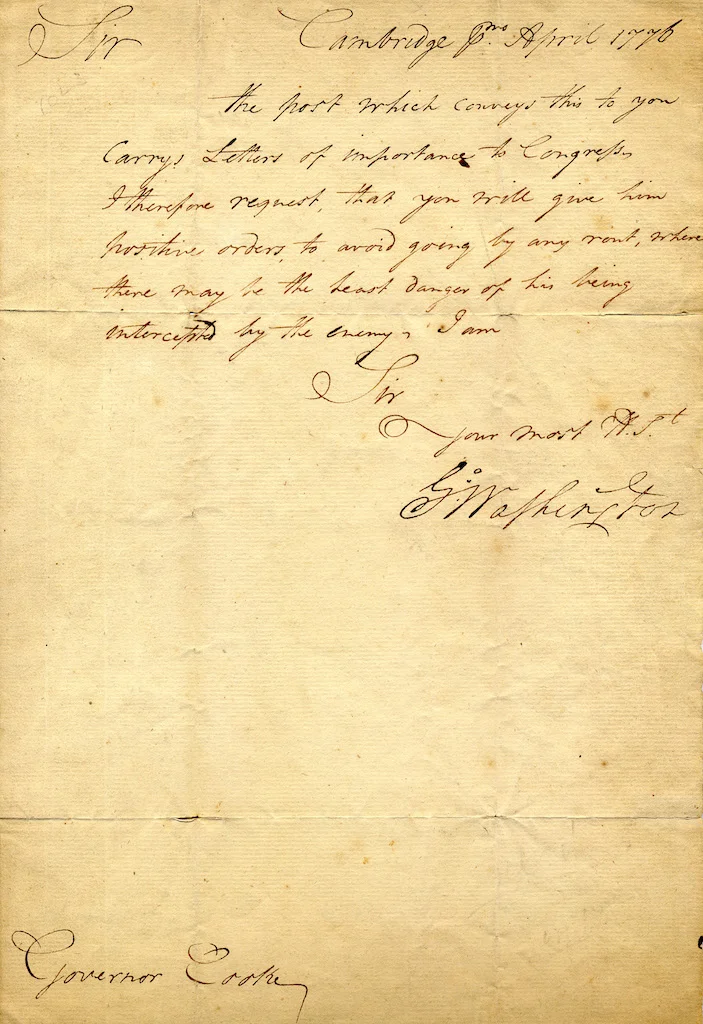 Sir Cambridge pmo. April 1776
the post which conveys this to you
Carrys Letters of importance to Congress,
I therefore request, that you will give him
positive orders, to avoid going by any rout, where
there may be the least danger of his being
intercepted by the enemy, I am
Sir
your most H.St
Go: Washington
Governor Cooke